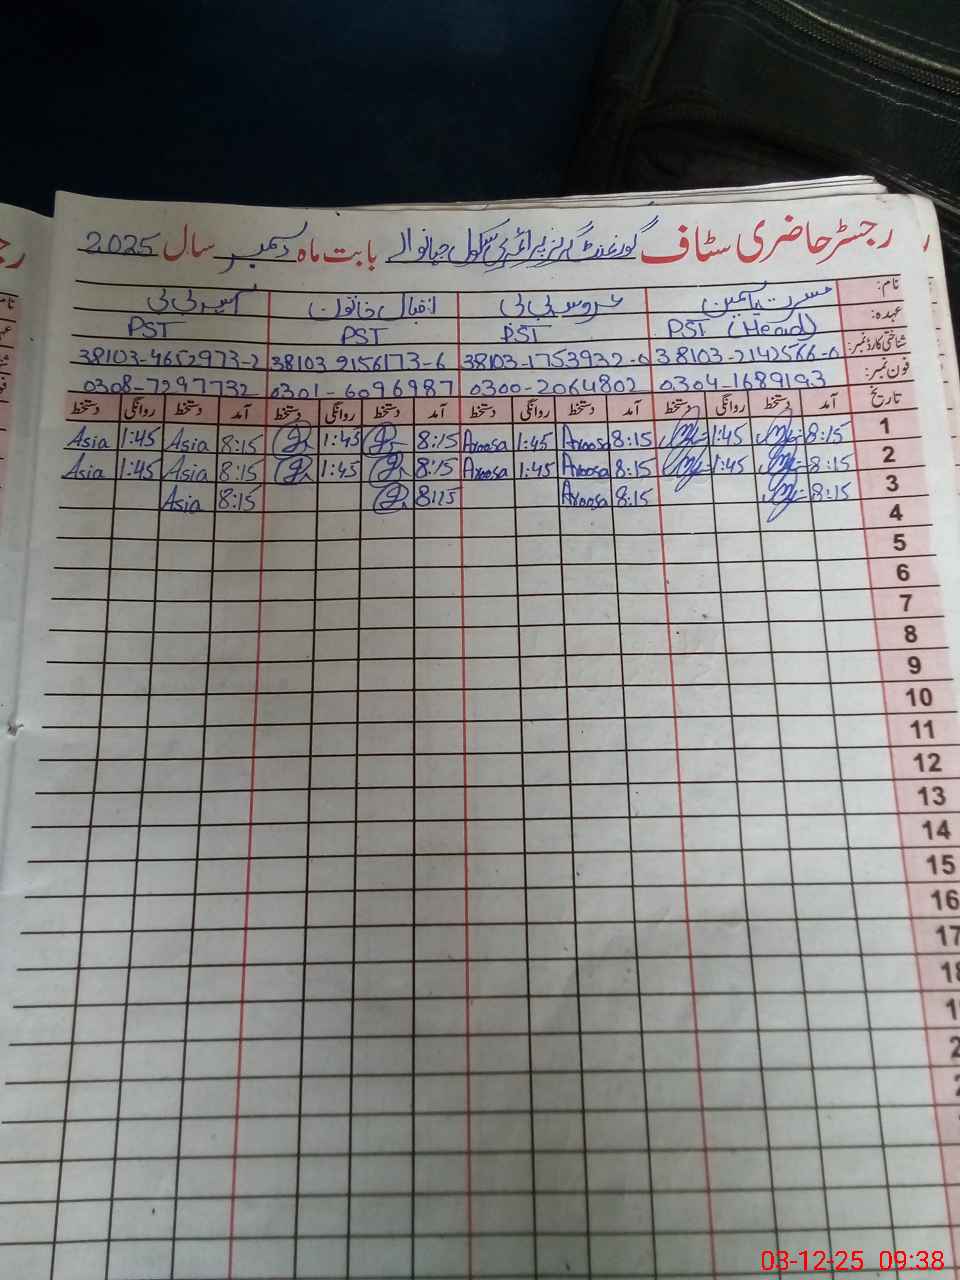 رجسٹر حاضری سٹاف گورنمنٹ گرلز پرائمری سکول جہانوالہ بابت ماہ دسمبر سال 2025
نام: مسرت یاسمین عروسہ بی بی اقبال خاتون آسیہ بی بی
عہدہ: PST (Head) PST PST PST
شناختی کارڈ نمبر: 38103-2142566-0 38103-1753932-0 38103 9156173-6 38103-4652973-2
فون نمبر: 0304-1689193 0300-2064802 0301-6096987 0308-7297732
تاریخ آمد دستخط روانگی دستخط آمد دستخط روانگی دستخط آمد دستخط روانگی دستخط آمد دستخط روانگی دستخط
1 8:15 1:45 8:15 Aroosa 1:45 Aroosa 8:15 1:45 8:15 Asia 1:45 Asia
2 8:15 1:45 8:15 Aroosa 1:45 Aroosa 8:15 1:45 8:15 Asia 1:45 Asia
3 8:15 8:15 Aroosa 8:15 8:15 Asia
4
5
6
7
8
9
10
11
12
13
14
15
16
17
03-12-25 09:38